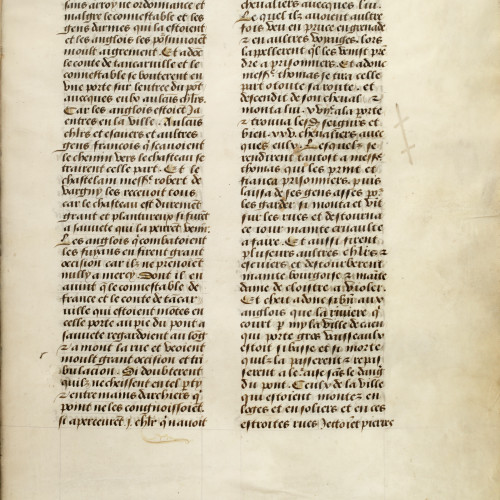 sans arroy ne ordonnance et
malgre le connestable et les
gens darmes qui la estoient
et les anglois les poursuivoiēt
moult aigrement. Et adōc
le conte de tancarville et le
connestable se bouterent en
une porte sur lentree du pōt
avecques eulx aulcūs chlrs.
Car les anglois estoiēt ja
entres en la ville. Aulcūs
chlrs et escuiers et aultres
gens francois q̄ scavoient
le chemin vers le chasteau se
trairent celle part. Et le
chastelain messē robert de
vargny les recevoit tous
car le chasteau est durement
grant et plantureux si furēt
a sauvete qui la peurēt venir.
Les anglois q̄ combatoient
les fuyans en firent grant
occision car ilz ne prenoiēt
nully a mercy. Dont il en
advint q̄ le connestable de
france et le conte de tācar
ville qui estoient mōtes en
celle porte au pie du pont a
sauvete regardoient au lōg
& a mont la rue & veoient
moult grant occision et tri
bulacion. Si doubterent
quilz necheissent en tel pty
& entre mains darchiers q̄
point ne les congnoissoiēt.
si aperceurēt j. chlr q̄ n'avoit
chevaliers avecques lui.
Lequel ilz avoient aultre
fois veu en pruce en grenade
& en aultres voyages. lors
lappellerent q̄l les venist prē
dre a prisonniers. Et adonc
messē thomas se tira celle
part o toute sa route. et
descendit de son cheval &
monta lui .xvi. a la porte
& trouva les seigneurs et
bien .xxv. chevaliers avec
ques eulx. Lesquelz se
rendirent tantost a messē
thomas qui les print et
fianca prisonniers. puis
laissa de ses gens asses por
les garder si monta et vit
sur les rues et destourna
ce jour mainte cruaulte
a faire. Et aussi firent
plusieurs aultres chlrs &
escuiers et destourberent
mainte bourgoise & mainte
dame de cloistre a violer.
Et cheit adonc si biē aux
anglois que la riviere q̄
court p my la ville de caen
qui porte gros vaisseaulx
estoit si basse et si morte
quilz la passerent & repas
serent a leur aise sās le dang̃
du pont. Ceulx de la ville
qui estoient montez en
loges et en soliers et en ces
estroites rues jectoiēt pierres